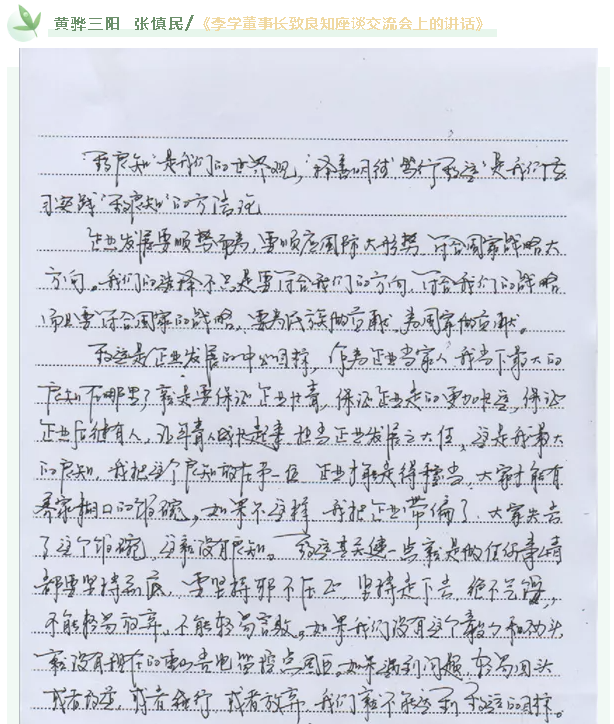 黄骅三阳 张慎民/《李学董事长致良知座谈交流会上的讲话》
"致良知"是我们的世界观,"择善明德 笃行致远"是我们
习实践"致良知"的方法论
企业发展要顺势而为,要顺应国际大形势 符合国家战略大
方向。我们的选择不只是要符合我们的方向,符合我们的战略
而且要符合国家的战略,要为民族做贡献,为国家做贡献。
致远是企业发展的中心目标,作为企业当家人 我当下最大的
良知在哪里?就是要保证企业 保证企业走的更加长远,保证
企业后继有人,让年青人成长起来 担当企业发展之大任,这是我最大
的良知,我把这个良知放在第一位 企业才能走得稳当,大家才能有
养家糊口的饭碗,如果不这样 我把企业带偏了,大家失去
了这个饭碗 这就没有良知。致远最关键一点就是做任何事情
都要坚持到底,要坚持邪不压正 坚持走下去 绝不
不能轻易放弃。不能轻易言败。如果我们没有这个毅力和劲头
就没有现在的 如果遇到问题 轻易回头
或者改 或者 或者放弃 我们就不能 到致远的目标。